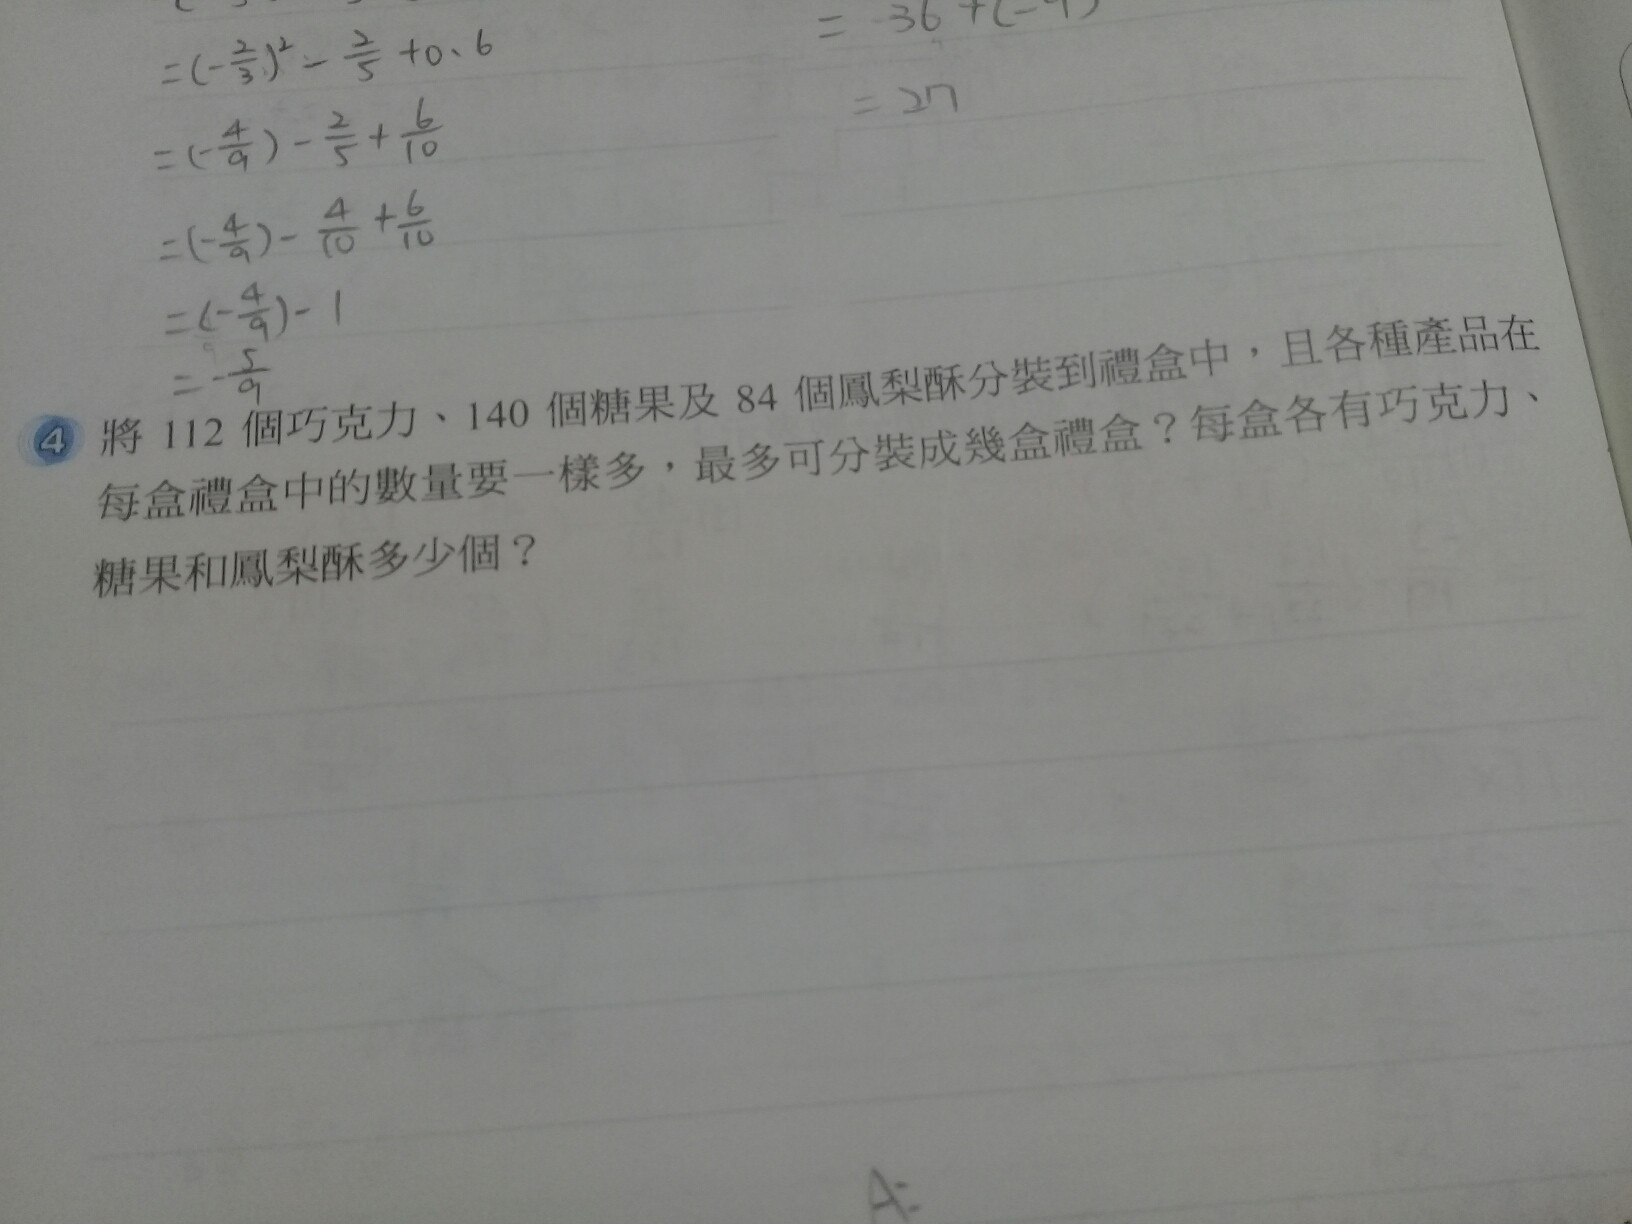 =(-2/3)² - 2/5 +0.6
=(-4/9) - 2/5 + 6/10
=(-4/9) - 4/10 + 6/10
=(-4/9) - 1
= -5/9
= 27
4 將 112 個巧克力、140 個糖果及 84 個鳳梨酥分裝到禮盒中,且各種產品在
每盒禮盒中的數量要一樣多,最多可分裝成幾盒禮盒?每盒各有巧克力、
糖果和鳳梨酥多少個?
A: